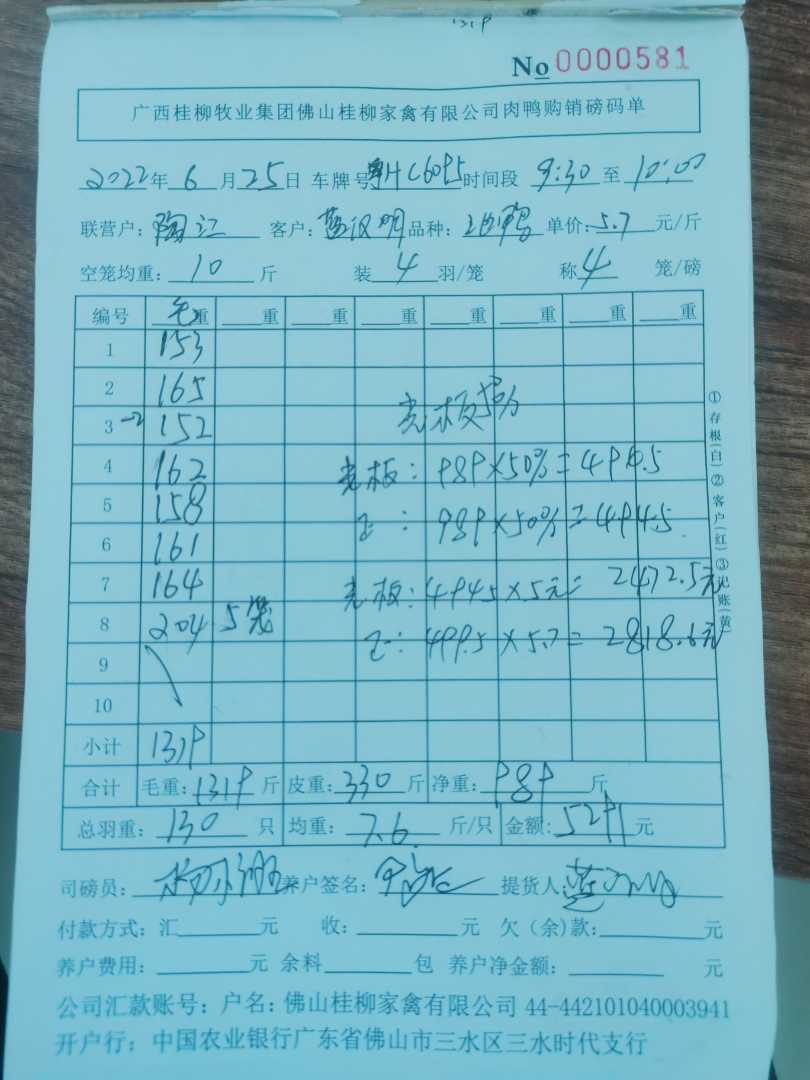 131P
No 0000581
广西桂柳牧业集团佛山桂柳家禽有限公司肉鸭购销磅码单
2022年 6月25日 车牌号 粤HC60P5 时间段 9:30 至 10:00
联营户: 陶江 客户: 蓝汉明 品种: 鸭 单价: 5.7 元/斤
空笼均重: 10 斤 装 4 羽/笼 称 4 笼/磅
编号 毛重 重 重 重 重 重 重 重
1 153
2 165
3 →2 152 光板50%
4 162 光板: 989×50%=494.5
5 158 : 989×50%=494.5
6 161
7 164 光板: 494.5×5元= 2472.5元
8 204 5笼 : 499.5×5.7= 2818.6元
9
10
小计 1319
合计 毛重: 1319 斤 皮重: 330 斤 净重: 989 斤
总羽重: 130 只 均重: 7.6 斤/只 金额: 5291 元
司磅员: 养户签名: 提货人:
付款方式: 汇 元 收: 元 欠(余)款: 元
养户费用: 元 余料 包 养户净金额: 元
公司汇款账号: 户名: 佛山桂柳家禽有限公司 44-442101040003941
开户行: 中国农业银行广东省佛山市三水区三水时代支行
①存根(白)②客户(红)③记账(黄)